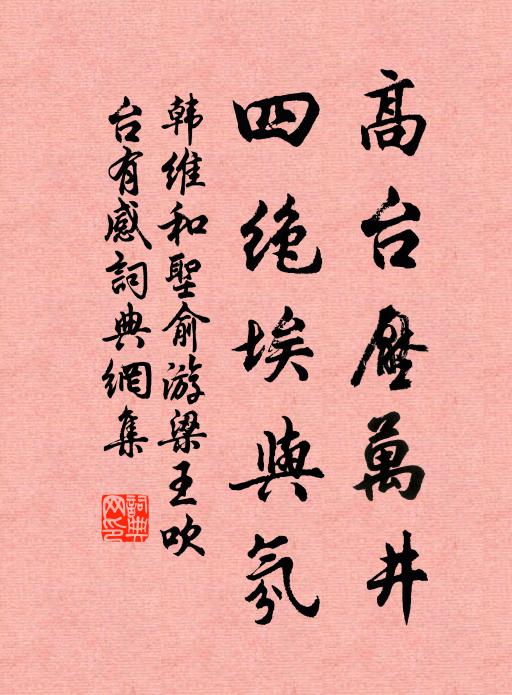 高台壓萬井
四绝埃與氛
韩维和聖俞游梁王吹
台有感詞典網集
詞典網印